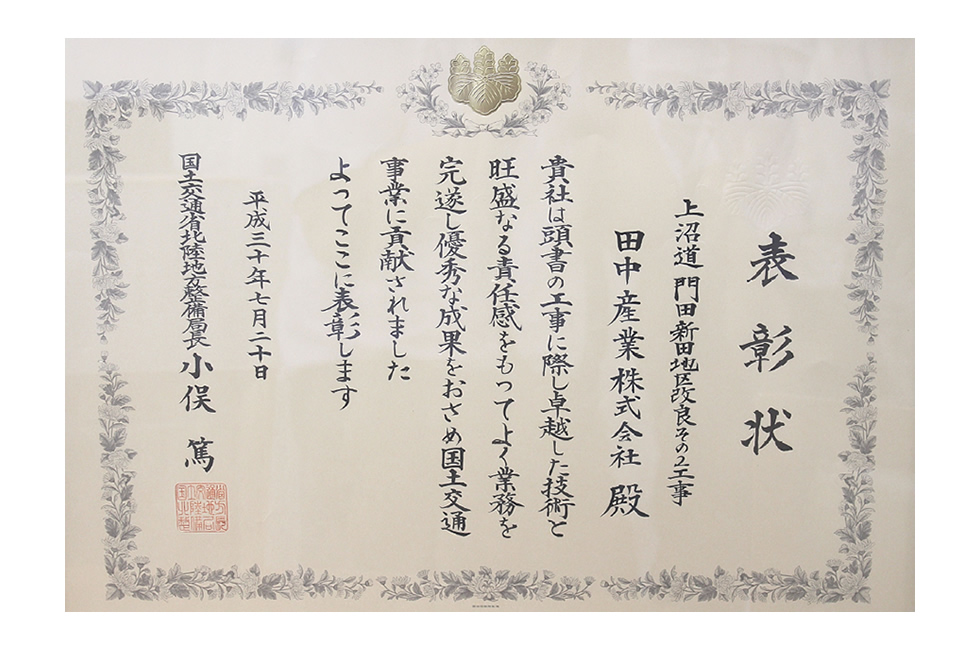 表彰状
上沼道 門田新田地区改良その2工事
田中産業株式会社 殿
貴社は頭書の工事に際し卓越した技術と
旺盛なる責任感をもつてよく業務を
完遂し優秀な成果をおさめ国土交通
事業に貢献されました
よってここに表彰します
平成三十年七月二十日
国土交通省北陸地方整備局長 小俣 篤